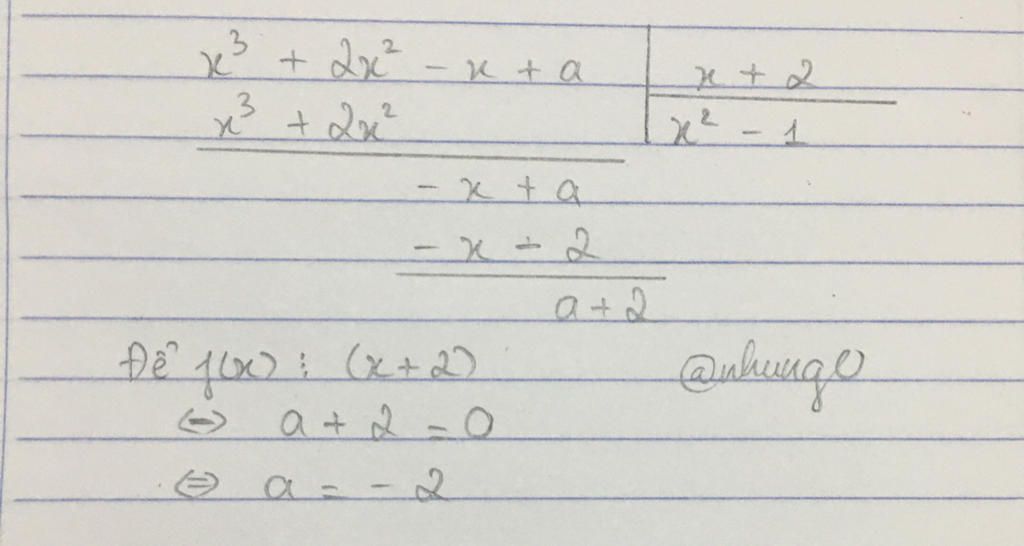 x³ + 2x² - x + a | x + 2
x³ + 2x² | x² - 1
- x + a
- x - 2
a + 2
Để f(x) ⋮ (x + 2) @nhung0
⇔ a + 2 = 0
⇔ a = - 2